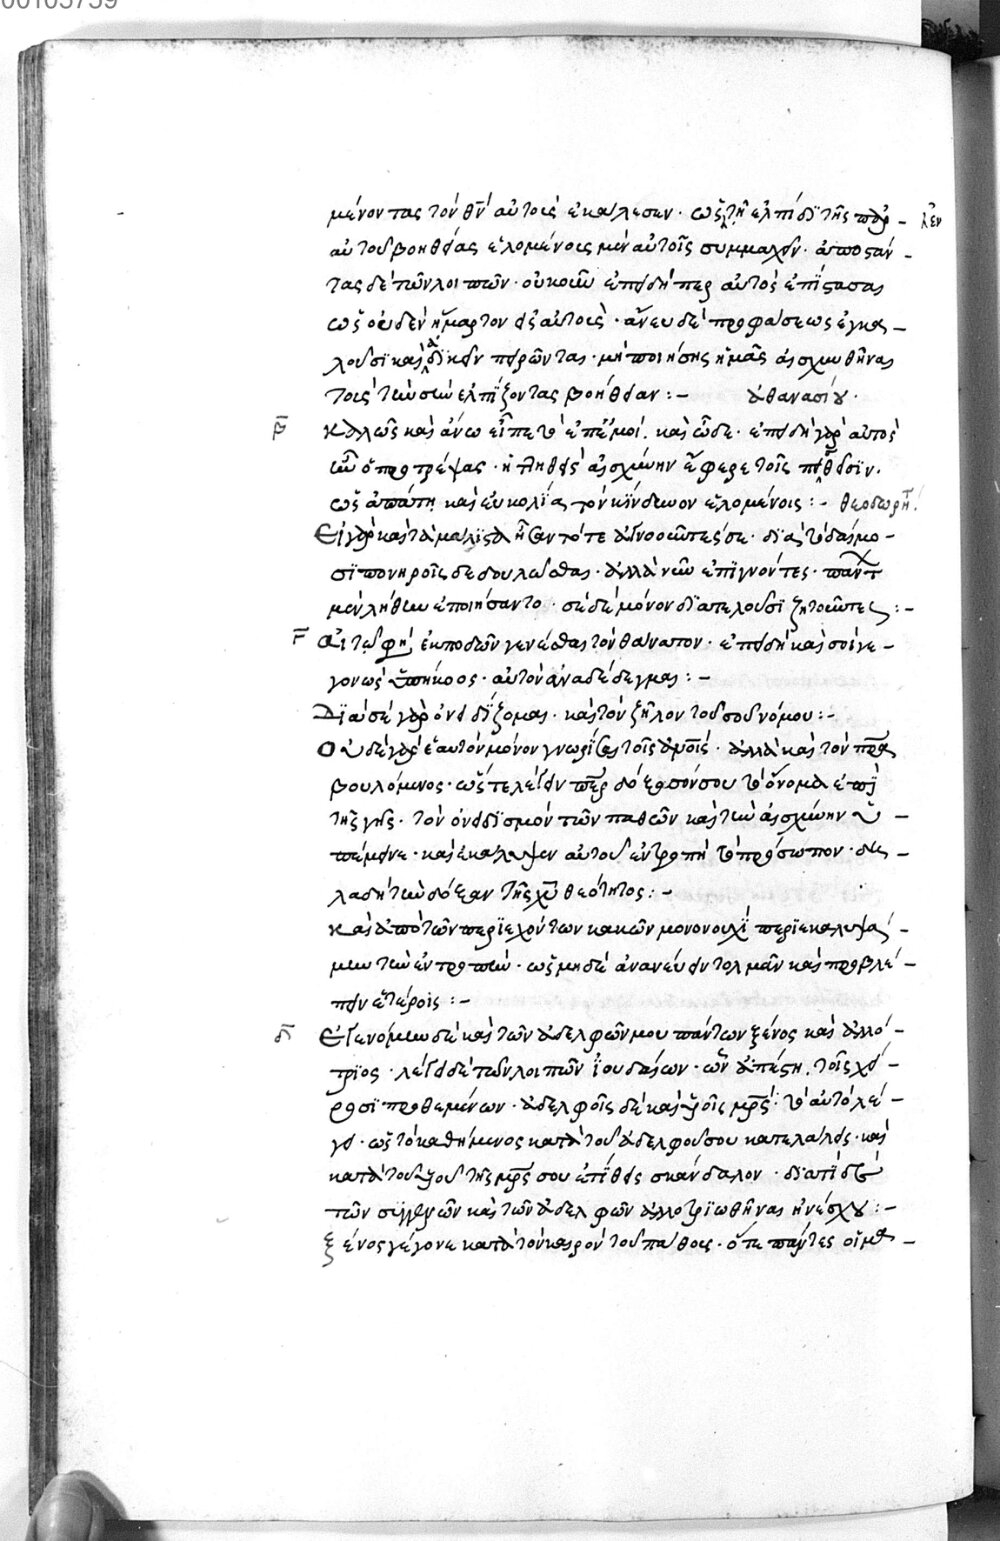 00105759
μένοντας τὸν θν̄ αὐτοῖς ἐκάλεσεν· ὡς τῆ ἐλπίδι τῆς παρ –
αὐτοῦ βοηθείας ἑλομένοις μὲν αὐτοῖς συμμαχεῖν· ἀποστάν –
τας δὲ τῶν λοιπῶν· οὐκοῦν ἐπειδήπερ αὐτὸς ἐπίστασαι
ὡς οὐδὲν ἥμαρτον εἰς αὐτοὺς· ἄνευ δὲ προφάσεως ἐγκα –
λοῦσι καὶ ἀδικεῖν πειρῶνται· μὴ ποιήσης ἡμᾶς αἰσχυνθῆναι
τοὺς τὴν σὴν ἐλπίζοντας βοήθειαν :– ἀθανασίου·
β̄ καλῶς καὶ ἄνω εἶπε τὸ ἐπ' ἐμοί. καὶ ὧδε· ἐπειδὴ γὰρ αὐτὸς
ὁ προτρέψας· ἡ πληθεῖς αἰσχύνην ἔφερε τοῖς πειθεῖσιν·
ὡς ἀπάτη καὶ εὐκολία τὸν κίνδυνον ἑλομένοις :– θεοδωρήτ
Εἰ γὰρ καὶ τὰ μάλιστα ἦσαν τότε ἀγνοοῦντες σε· διὰ τὸ δαίμο –
σι πονηροῖς δεδουλῶσθαι· ἀλλὰ νῦν ἐπιγνόντες· πάντ
μὲν λήθην ἐποιήσαντο· σὲ δὲ μόνον διατελοῦσι ζητοῦντες :–
γ̄ Αἰτῶ φη, ἐκποδὼν γενέσθαι τὸν θάνατον· ἐπειδὴ καὶ σοὶ γε –
γονὼς ὑπήκοος· αὐτὸν ἀναδέδεγμαι :–
Διὰ σὲ γὰρ ὀνειδίζομαι· καὶ τὸν ζῆλον τοῦ σοῦ νόμου :–
Οὐδὲ γὰρ ἑαυτὸν μόνον γνωρίσαι τοῖς ἀνοῖς· ἀλλὰ καὶ τὸν πρα
βουλόμενος· ὡς τελείαν περ δόξασόν σου τὸ ὄνομα ἐπὶ
τῆς γῆς· τὸν ὀνειδισμὸν τῶν παθῶν καὶ τὴν αἰσχύνην ὑ –
πέμεινε· καὶ ἐκάλυψεν αὐτοῦ ἐντροπὴ τὸ πρόσωπον· δη –
λαδὴ τὴν δόξαν τῆς χῡ θεότητος :–
καὶ ἀπὸ τῶν περιεχόντων κακῶν μονονουχὶ περιεκαλυψά –
μην τὴν ἐντροπὴν· ὡς μηδὲ ἀνανεύειν τολμᾶν καὶ προβλέ –
πειν ἑτέροις :–
δ̄ Ἐγενόμην δὲ καὶ τῶν ἀδελφῶν μου πάντων ξένος καὶ ἀλλό –
τριος· λέγει δὲ τῶν λοιπῶν ἰουδαίων· ὧν ἀπέστη. τοῖς χεί –
ροσι προθεμένων· ἀδελφοῖς δὲ καὶ υἱοῖς μρς· τὸ αὐτὸ λέ –
γει· ὡς τὸ καθήμενος κατὰ τοῦ ἀδελφοῦ σου κατελάλεις· καὶ
κατὰ τοῦ υἱοῦ τῆς μρς σου ἐτίθεις σκάνδαλον·
τῶν συγγενῶν καὶ τῶν ἀδελφῶν ἀλλοτριωθῆναι ἠνέσχου :–
ξένος γέγονε κατὰ τὸν καιρὸν τοῦ πάθους· ὅτε πάντες οἱ μα –